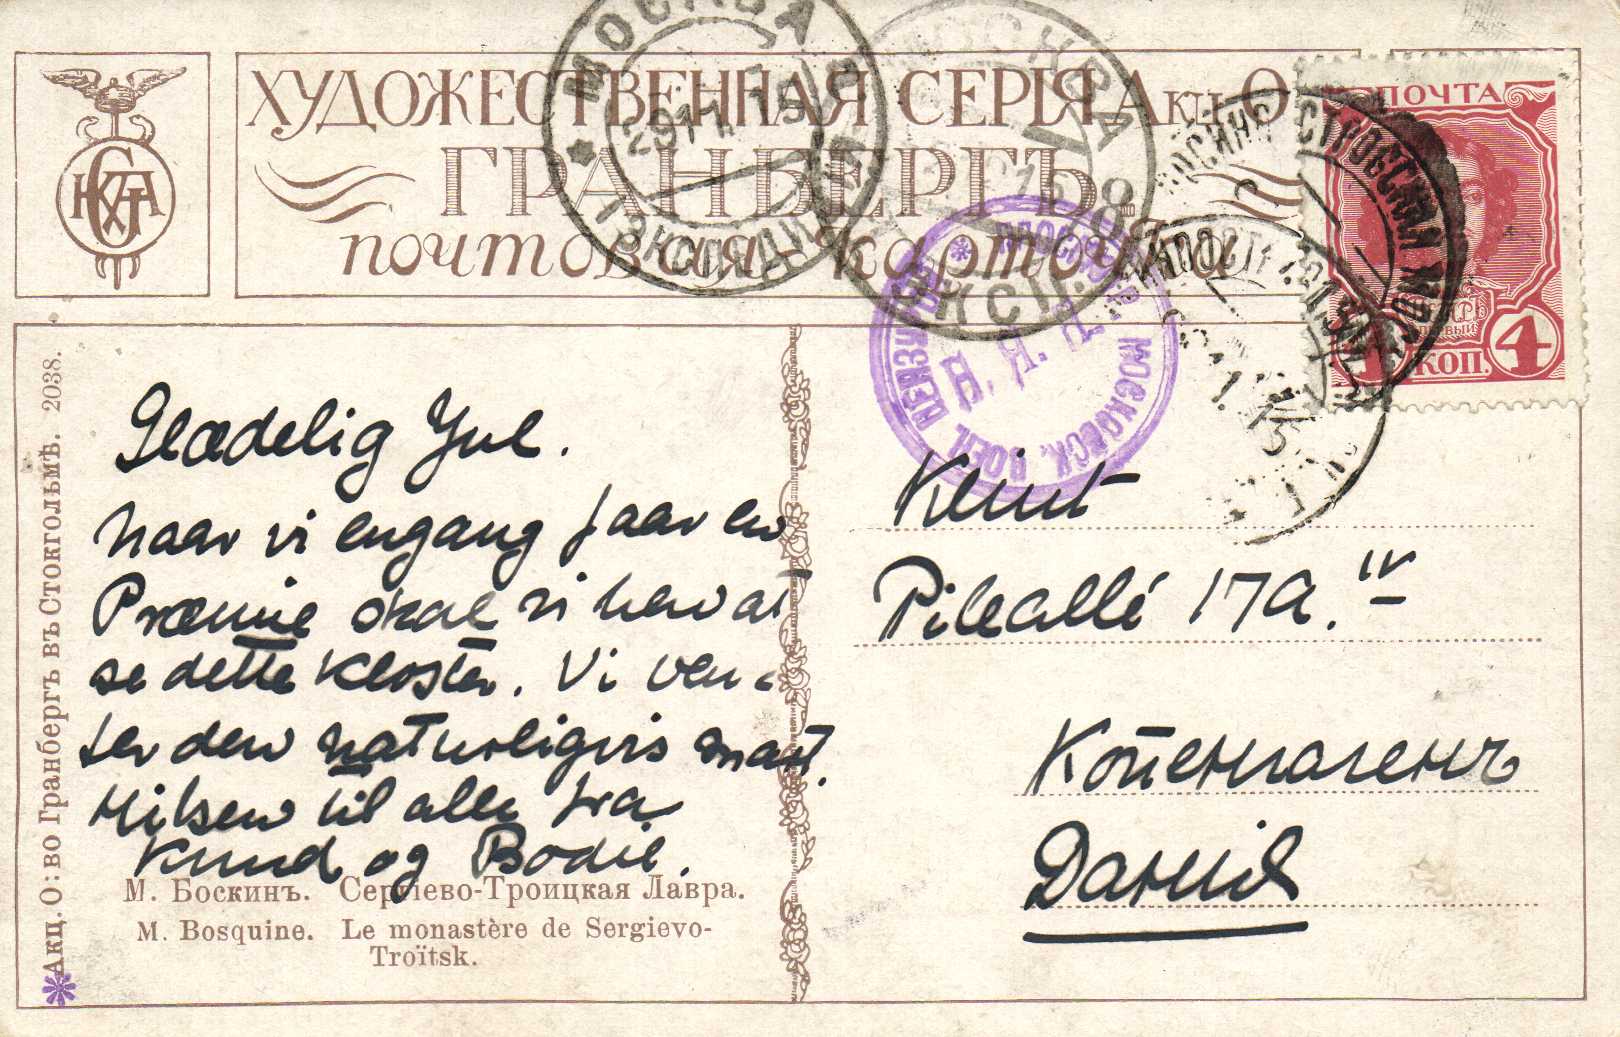 ХУДОЖЕСТВЕННАЯ СЕРІЯ Акц. О
ГРАНБЕРГЪ
почтовая карточка
МОСКВА
ЭКСПЕДИЦ
МОСКВА
8
ЭКСП.
ПОЧТА
4 КОП. 4
МОСКОВСК. ВОЕН. ЦЕНЗУРОЙ
Акц. О:во Гранбергъ въ Стокгольмѣ. 2038.
Glædelig Jul.
Naar vi engang faar en
Præmie skal vi hen at
se dette Kloster. Vi ven-
ter den naturligvis snart.
Hilsen til alle fra
Knud og Bodil.
М. Боскинъ. Сергіево-Троицкая Лавра.
M. Bosquine. Le monastère de Sergievo-
Troïtsk.
Klint
Pileallé 17A. IV
Копенгагенъ
Данія